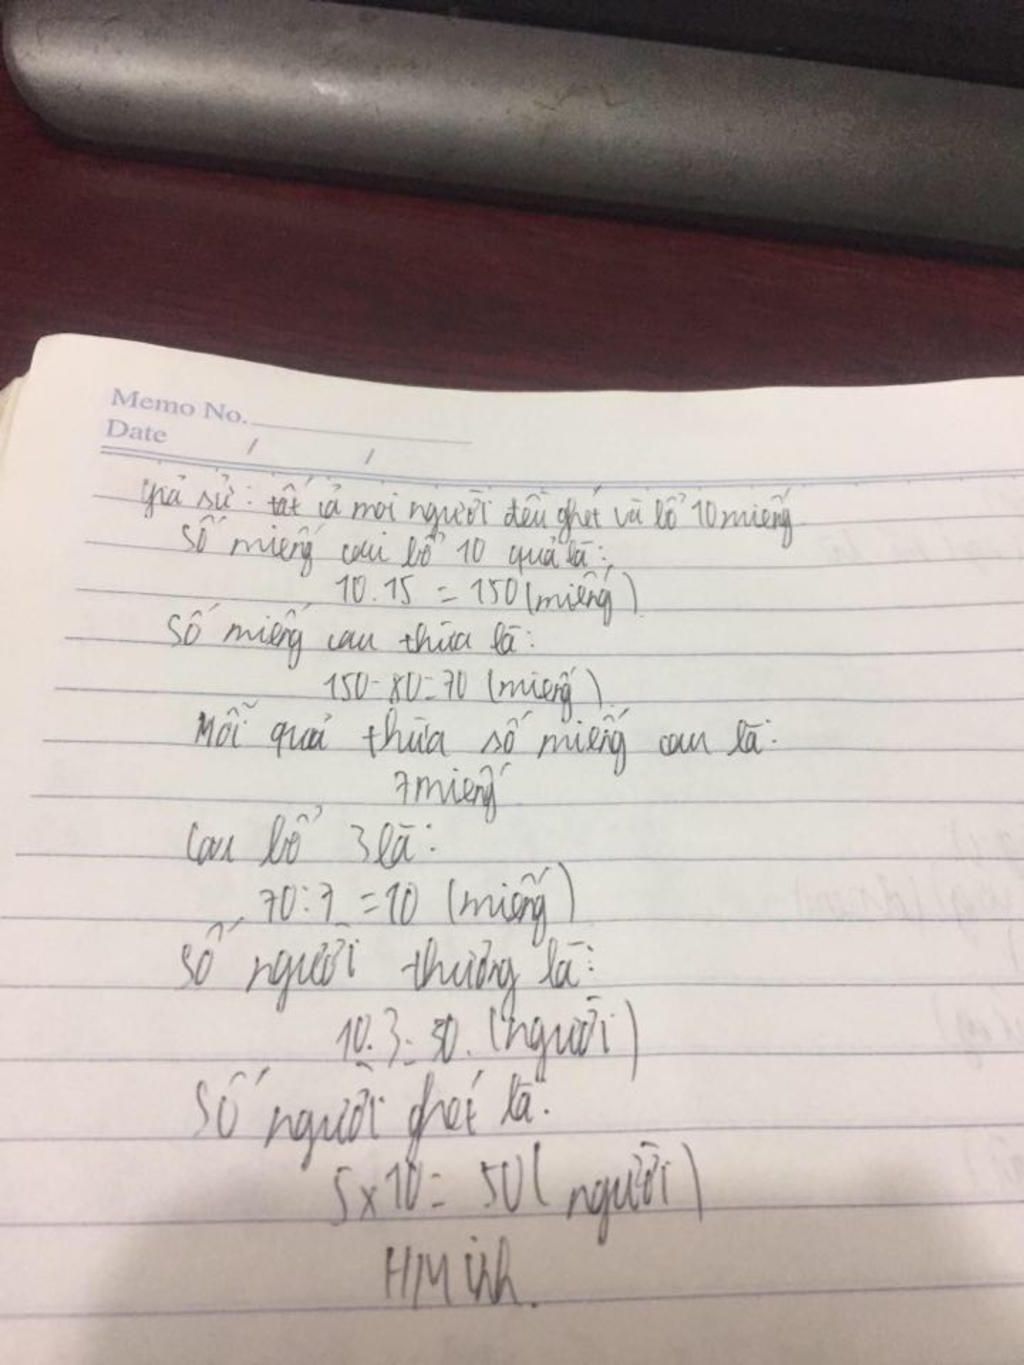 Memo No.
Date / /
giả sử: tất cả mọi người đều ghét và bổ 10 miếng
Số miếng cau bổ 10 quả là:
10.15 = 150 (miếng)
Số miếng cau thừa là:
150-80=70 (miếng)
Mỗi quả thừa số miếng cau là:
7 miếng
Cau bổ 3 là:
70:7 = 10 (miếng)
Số người thương là:
10.3=30. (người)
Số người ghét là:
5x10= 50 (người)
HMinh.